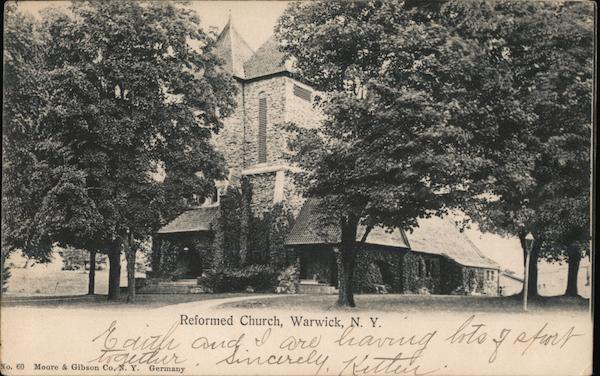 Reformed Church, Warwick, N. Y.
Edith and I are having lots of sport
together. Sincerely, Kitten.
No. 60 Moore & Gibson Co. N. Y. Germany